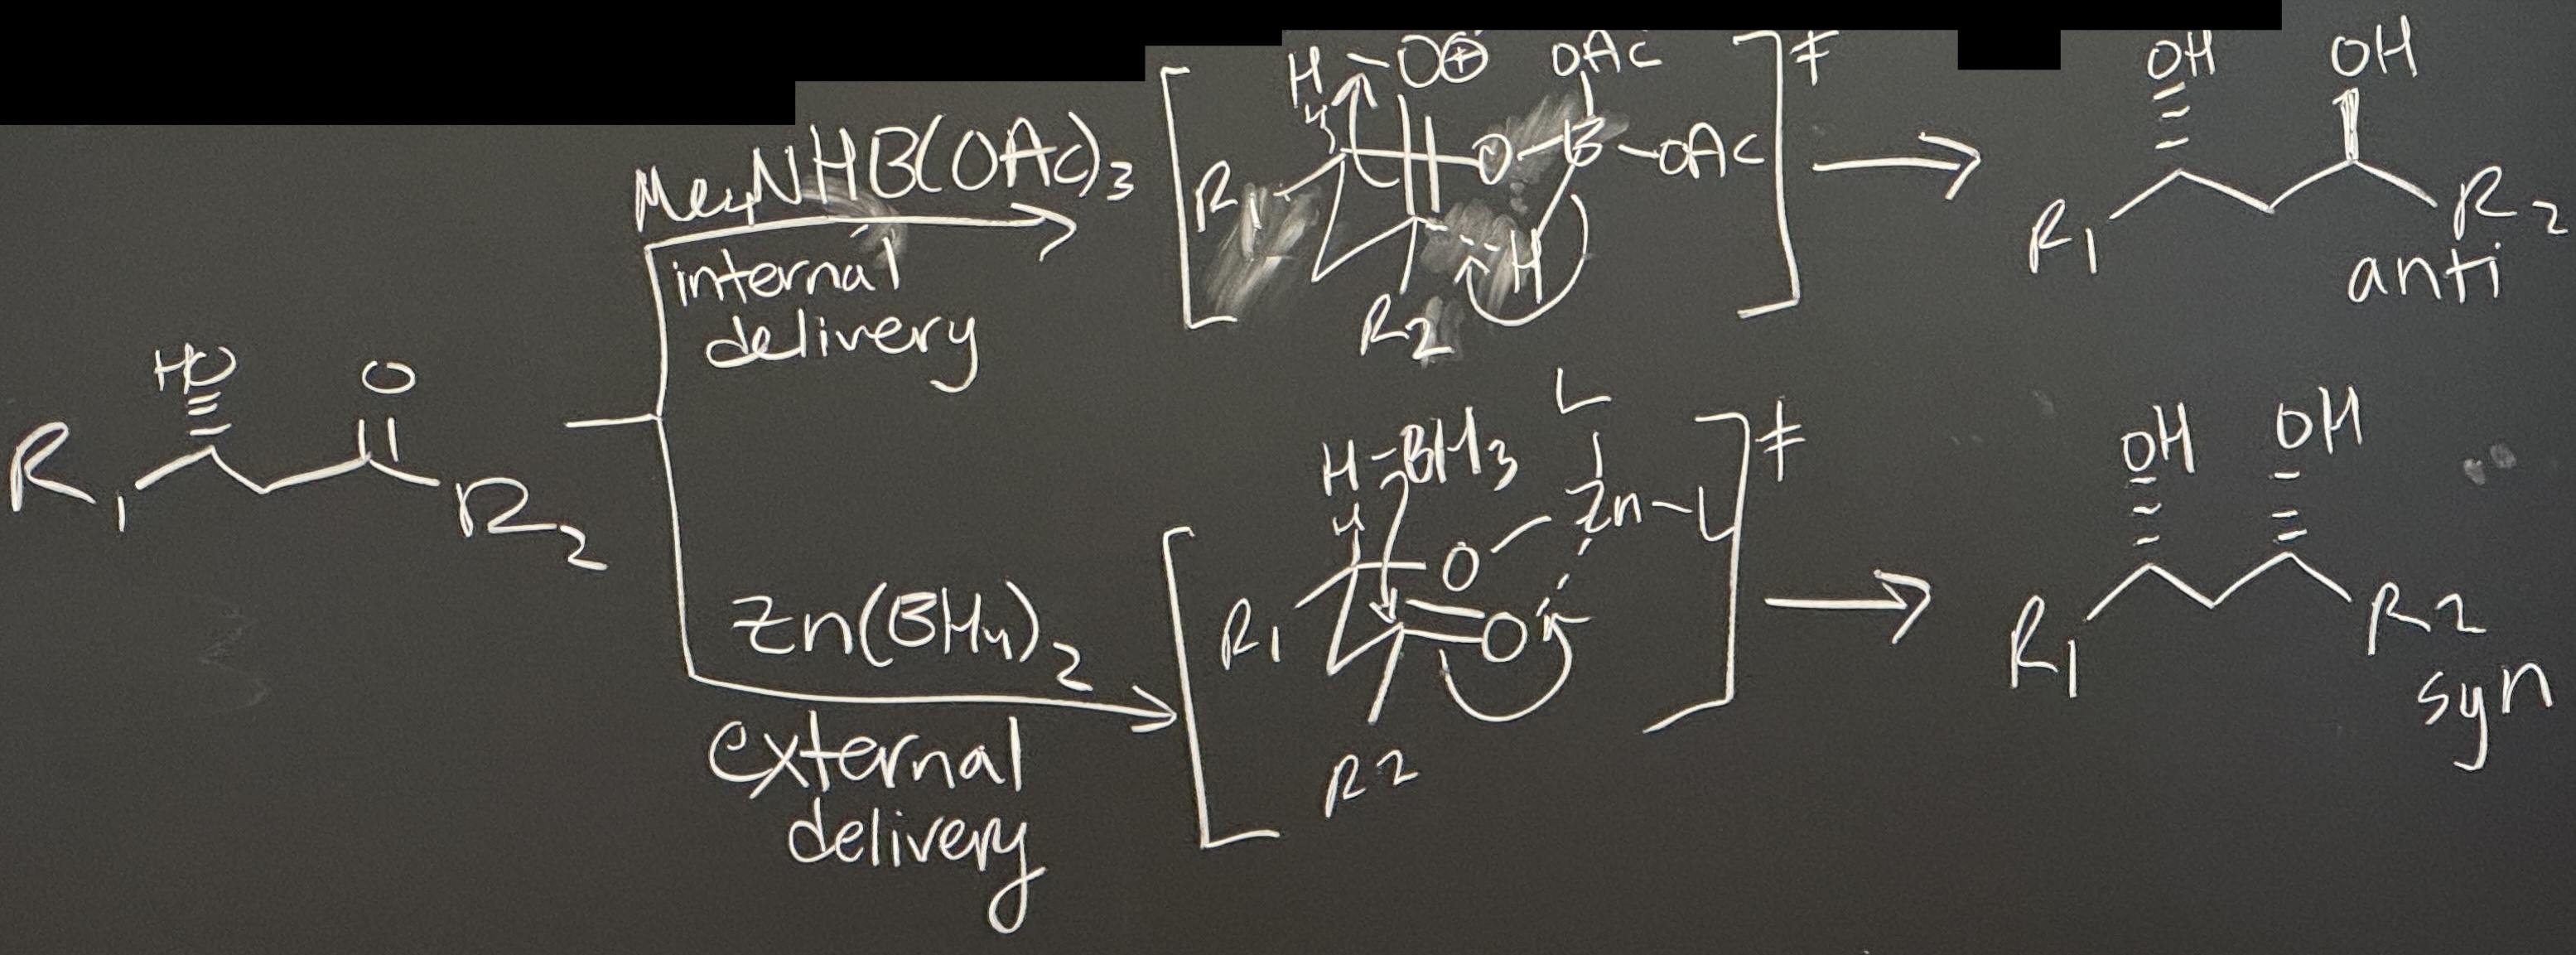 HO
O
R1
R2
Me4NHB(OAc)3
internal
delivery
H-O⊕
OAc
H
R1
O-B-OAc
H
R2
]‡
OH
OH
R1
R2
anti
Zn(BH4)2
external
delivery
H-BH3
L
H
Zn-L
O
R1
O
R2
]‡
OH
OH
R1
R2
syn